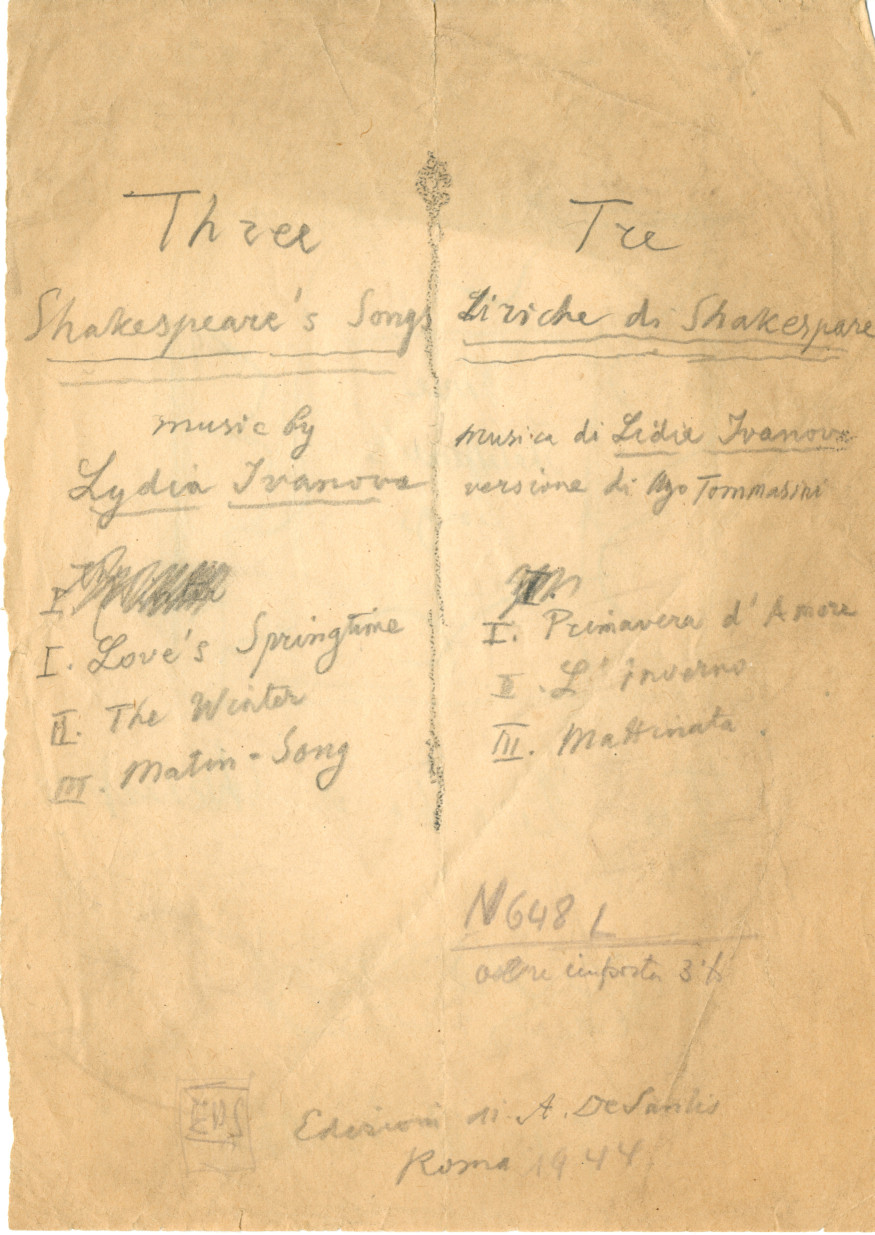 Three
Shakespeare's Songs
music by
Lydia Ivanova
I.
I. Love's Springtime
II. The Winter
III. Matin-Song
Tre
Liriche di Shakespare
musica di Lidia Ivanova
versione di Ugo Tommasini
I.
I. Primavera d'Amore
II. L'inverno
III. Mattinata.
N 648 L
oltre imposta 3%
Edizioni di A. De Santis
Roma 1944